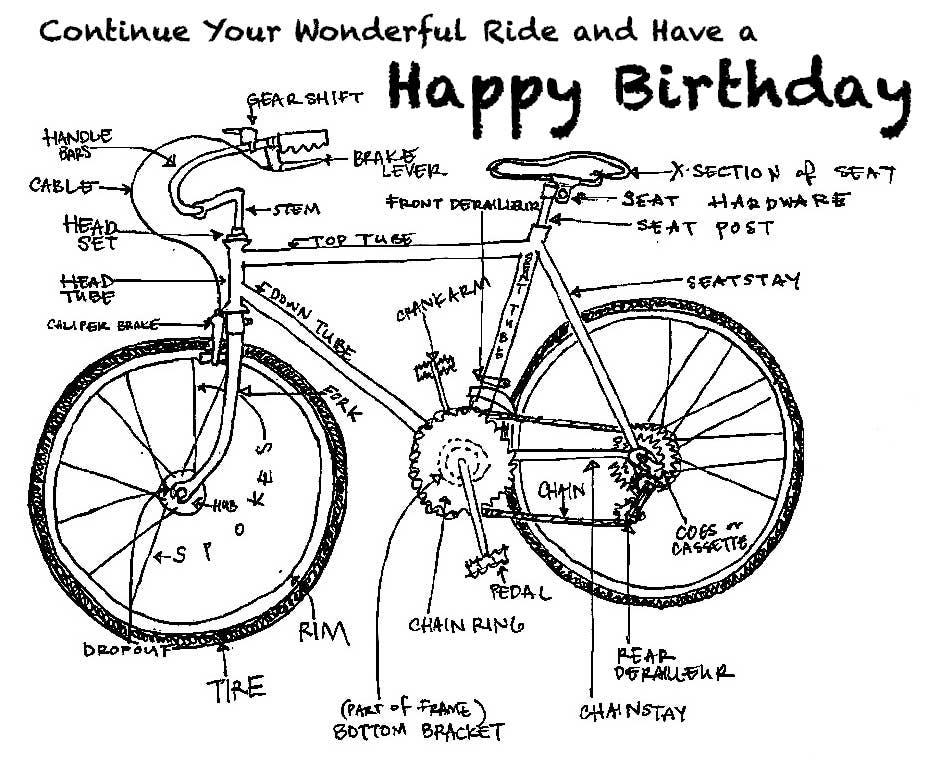 Continue Your Wonderful Ride and Have a
Happy Birthday
GEARSHIFT
HANDLE
BARS
BRAKE
LEVER
CABLE
X-SECTION of SEAT
FRONT DERAILLEUR
SEAT HARDWARE
STEM
SEAT POST
HEAD
SET
TOP TUBE
SEAT TUBE
HEAD
TUBE
SEATSTAY
DOWN TUBE
CRANKARM
CALIPER BRAKE
FORK
SPOKES
HUB
CHAIN
COGS or
CASSETTE
PEDAL
CHAIN RING
RIM
DROPOUT
TIRE
REAR
DERAILLEUR
(PART of FRAME)
BOTTOM BRACKET
CHAINSTAY